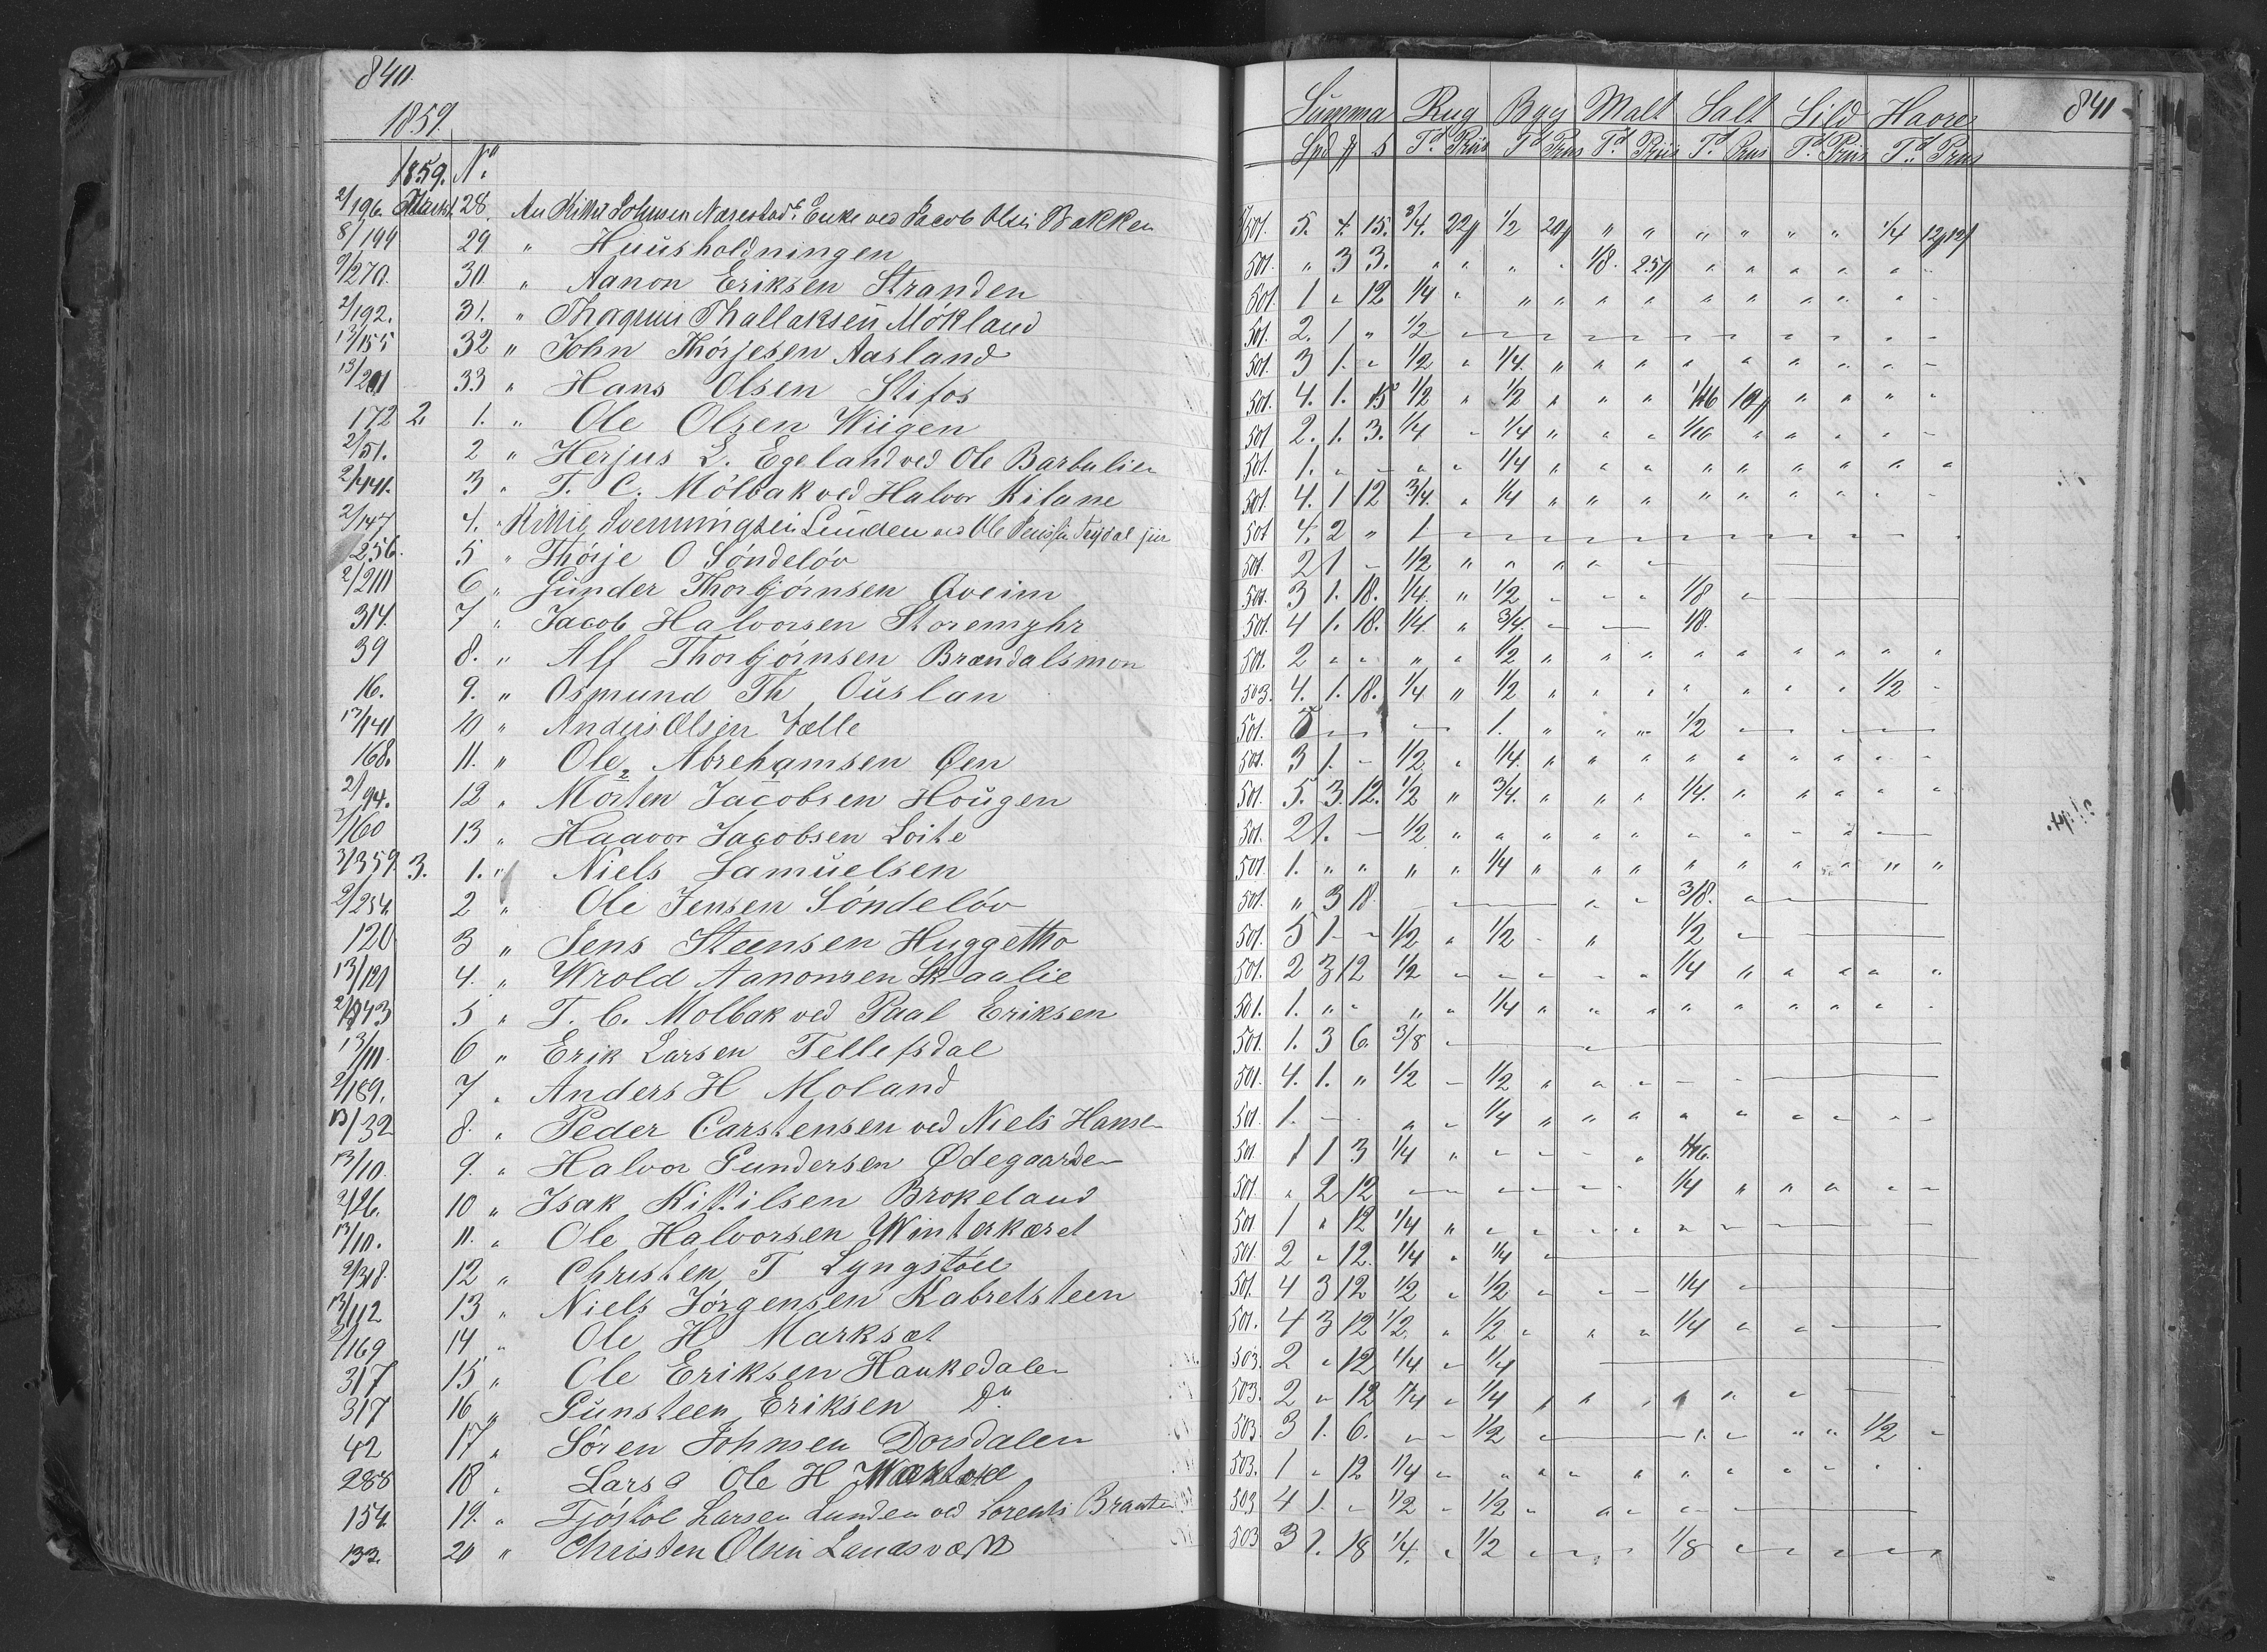 840.
1859.
1859. No.
2/196. 28. An Johnsen Enke ved Jacob Olsen Bakken
8/199 29 " Huusholdningen
2/270. 30 " Aanon Eriksen Stranden
2/192. 31. " Thallaksen Mökland
13/155 32 " John Thorjesen Aasland
13/201 33 " Hans Olsen Stifos
172 2. 1. " Ole Olsen Wiigen
2/51. 2 " Herjus L. Egeland ved Ole Barbulien
2/441. 3 " T. C. Mölbak ved Halvor Kilane
2/147 4. " Svenningsen Linden ved Ole jür
256. 5 " Thörje O Söndelöv
2/210 6 " Gunder Thorbjörnsen Qveim
314. 7 " Jacob Halvorsen Storemyhr
39 8. " Alf Thorbjörnsen Brændalsmon
16. 9. " Osmund Th Ouslan
13/141 10 " Anders Olsen Fælle
168. 11. " Ole Abrehamsen Øen
2/94. 12 " Morten Jacobsen Hougen
2/160 13 " Haavor Jacobsen Loite
3/359. 3. 1. " Niels Samuelsen
2/254. 2 " Ole Jensen Söndelöv
120 3 " Jens Steensen Huggetho
13/121 4. " Wrold Aanonsen Skaalie
5 " T. C. Molbak ved Paal Eriksen
13/11. 6 " Erik Larsen Tellefsdal
2/189. 7 " Anders H Moland
13/32 8. " Peder Carstensen ved Niels Hansen
13/10. 9. " Halvor Gundersen Ødegaarden
2/26. 10 " Isak Kittilsen Brokeland
13/10. 11. " Ole Halvorsen Winterkæret
2/318. 12 " Christen T Lyngstöll
13/112 13 " Niels Jörgensen Kabretsteen
2/169 14 " Ole H Marksæt
317 15 " Ole Eriksen Haukedalen
317 16 " Gunsteen Eriksen Do
42 17 " Sören Johnsen Dorsdalen
288 18 " Lars Ole H
154. 19. " Fjöstöl Larsen Lunden ved Lorents Braaten
133. 20 " Christen Olsen Landsværk
841
Summa Rug Bgg Malt Salt Sild Havre
Spd ß Td Priis Td Priis Td Priis Td Priis Td Priis Td Priis
501. 5. 4. 15. 3/4. 22ß 1/2 20ß " " " " " " 1/4
501. " 3 3. " " " " 1/8. 25ß " " " " " "
501. 1 " 12 1/4 " " " " " " " " " " "
501. 2. 1 " 1/2
501. 3 1. " 1/2 " 1/4. " " " " " " " " "
501. 4. 1. 15 1/2 " 1/2 " " " 1/16 10ß " " " "
501 2. 1. 3. 1/4 " 1/4 " " " 1/16 " " " " "
501. 1. " " " " 1/4 " " " " " " " " "
501. 4. 1 12 3/4. " 1/4 " " " " " " " " "
501 4. 2 " 1
501. 2 1 " 1/2 " " " " "
501. 3 1. 18. 1/4. " 1/2 " " " 1/8 "
501. 4 1. 18. 1/4. " 3/4. 1/8.
501. 2 " " " " 1/2 " " " " " " " " "
503. 4. 1. 18. 1/4 " 1/2 " " " " " " " 1/2 "
501. 5 1. " " " 1/2
501. 3 1. " 1/2 " 1/4. " " " " " " " " "
501. 5. 3. 12. 1/2 " 3/4. " " " 1/4. " " " " "
501. 2 1. " 1/2 " " " " " " " " "
501. 1. " " " " 1/4 " " " " " " " " "
501. " 3 18 3/8. "
501. 5 1. " 1/2 " 1/2 " " 1/2 "
501. 2 3 12 1/2 " " " " " 1/4 " " " " "
501. 1. " " " " 1/4 " " " " " " " " "
501. 1. 3 6. 3/8
501. 4. 1. " 1/2 " 1/2 " " " " "
501 1. " " " 1/4 " " " " " " " " "
501 1 1 3 1/4 " " " " " 1/16.
501. " 2 12 1/4 " " " " "
501 1 " 12 1/4 " " " " " " "
501. 2 " 12. 1/4 " 1/4 "
501. 4 3 12 1/2 " 1/2 " " " 1/4 "
501. 4 3 12 1/2. " 1/2 " " " 1/4 " "
503. 2 " 12 1/4. " 1/4
503. 2 " 12 1/4 " 1/4 " " " " " "
503. 3 1. 6. " " 1/2 " " " " " 1/2 "
503. 1 " 12 1/4 " " " " " " " " " " "
503 4 1. " 1/2 " 1/2 " " " "
503 3 1. 18 1/4. " 1/2 " " " 1/8 " " " " "